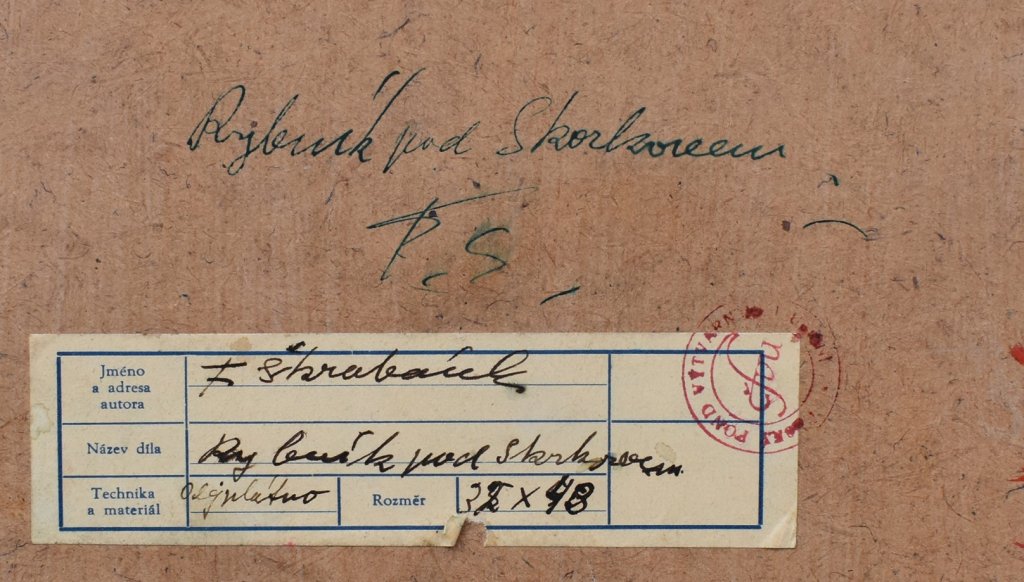 Rybník pod Skorkovem
F. S.
Jméno
a adresa
autora
F Škrabánek
Název díla
Rybník pod Skorkovem
Technika
a materiál
olej plátno
Rozměr
FOND VÝTVARN